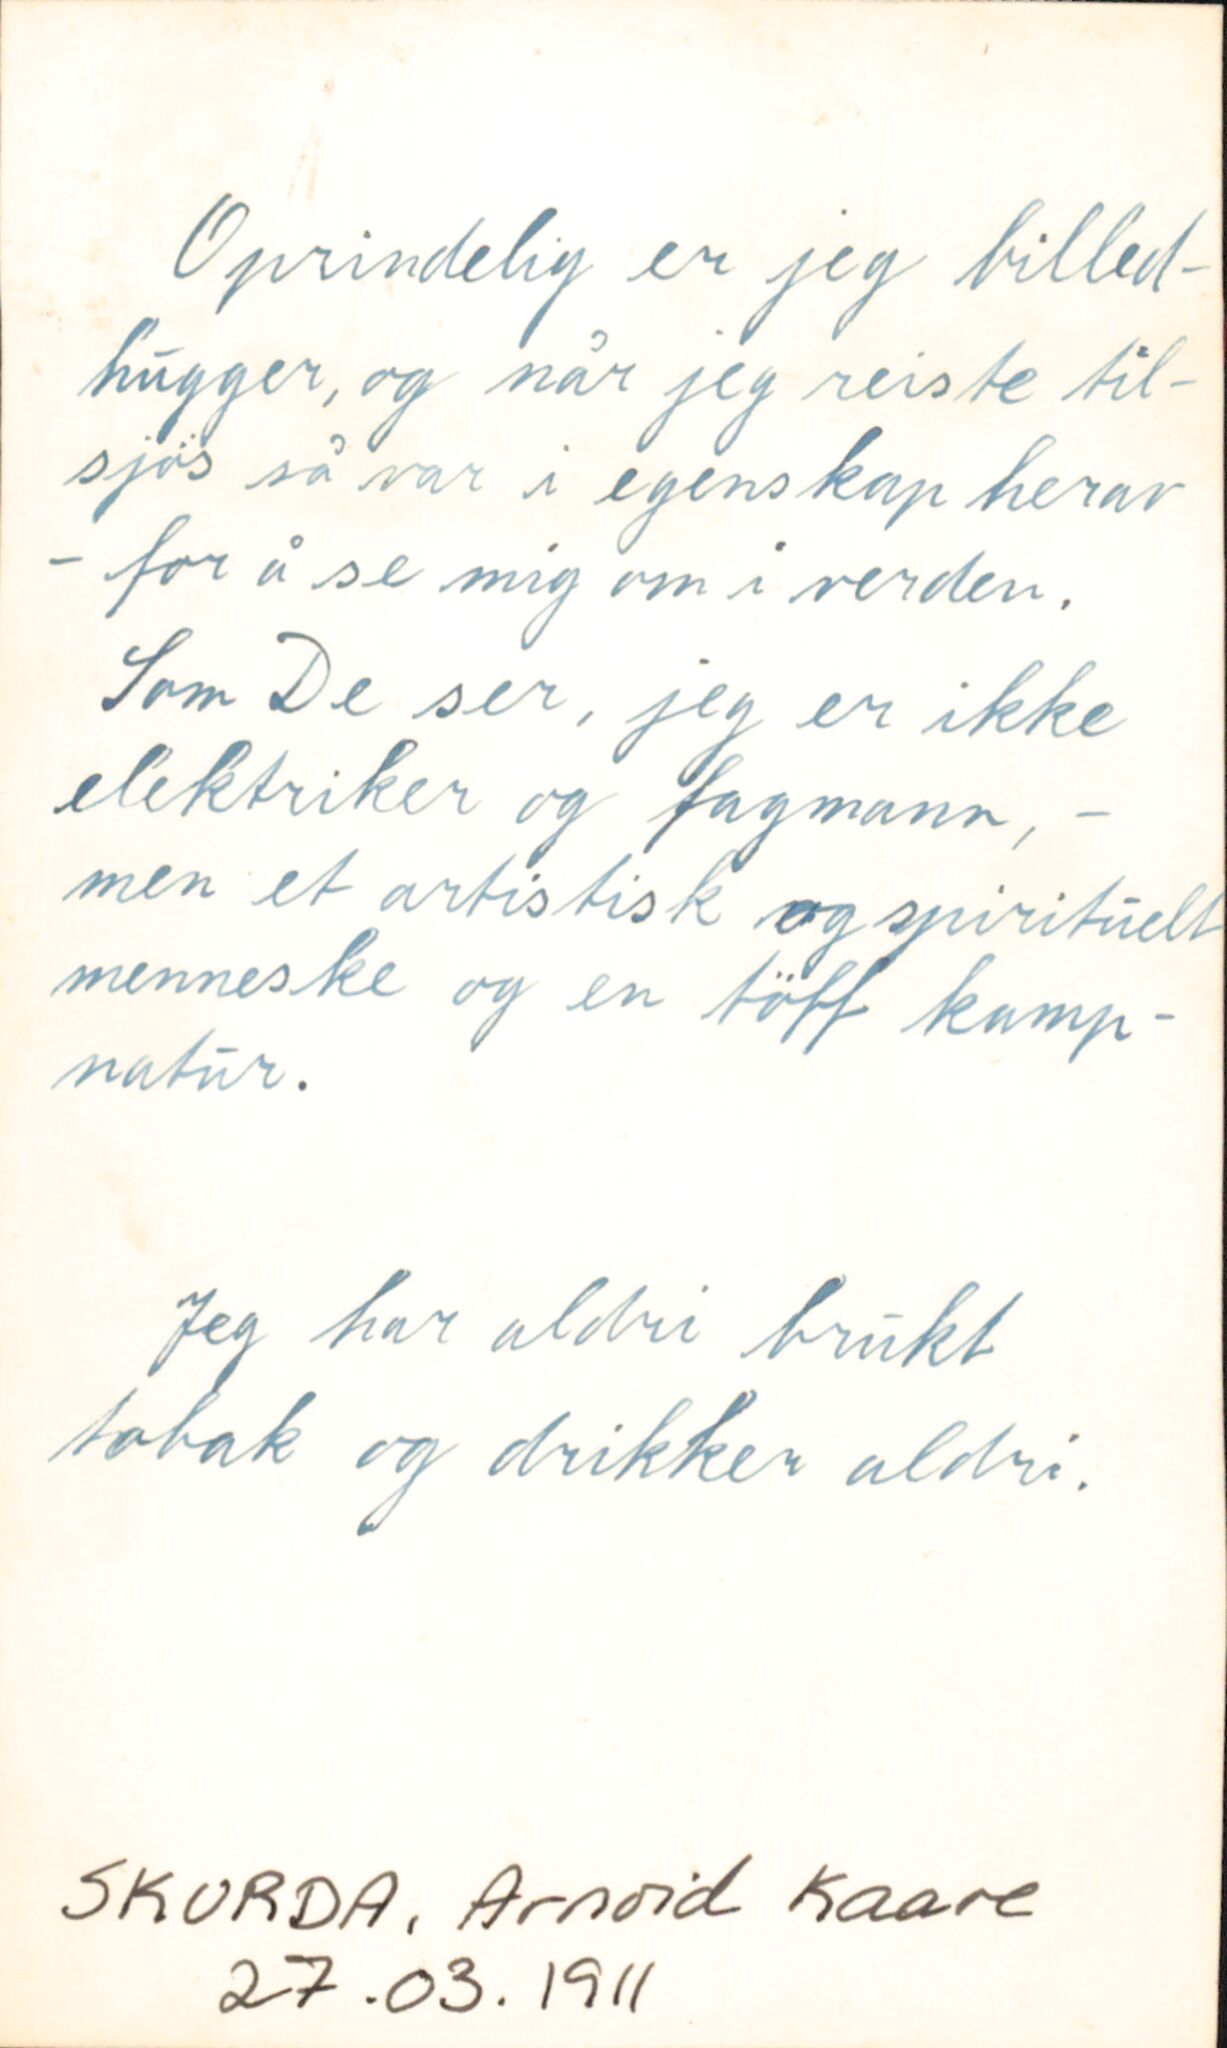 Oprindelig er jeg billed-
hugger, og når jeg reiste til-
sjös så var i egenskap herav
- for å se mig om i verden.
Som De ser, jeg er ikke
elektriker og fagmann, -
men et artistisk og spirituelt
menneske og en töff kamp-
natur.
Jeg har aldri brukt
tobak og drikker aldri.
SKURDA, Arnoid Kaare
27.03.1911